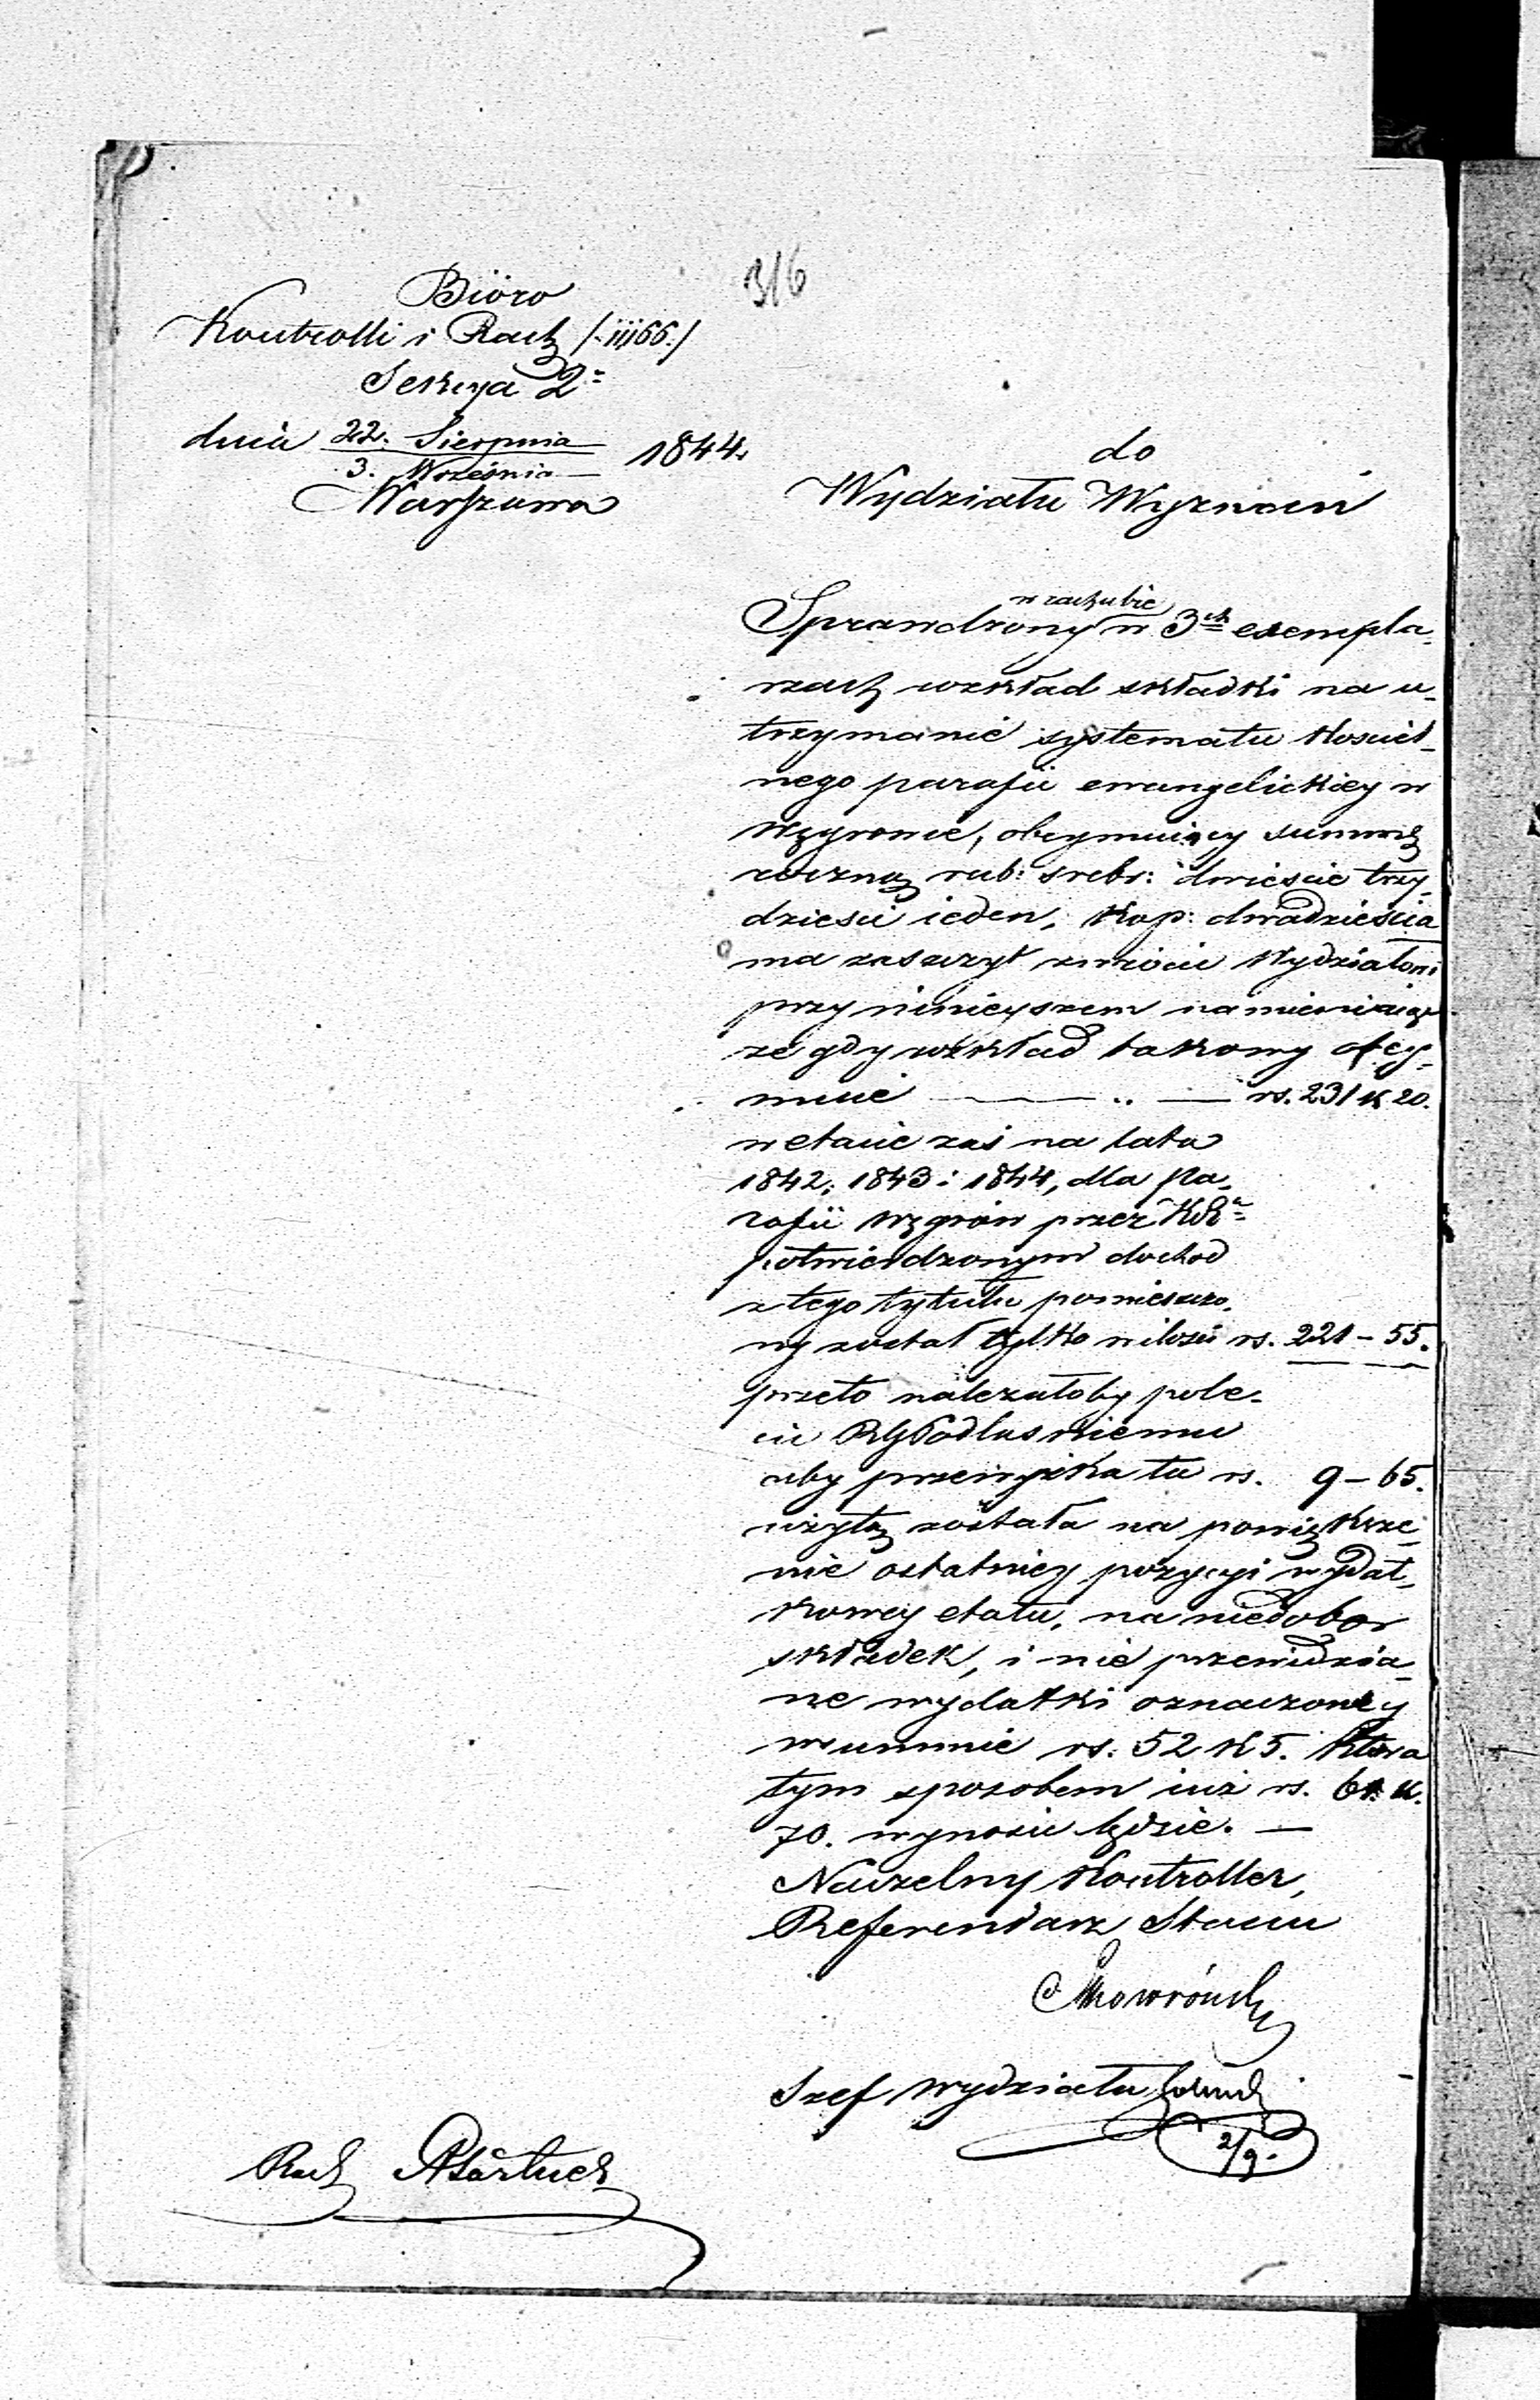 316
Biöro
Kontrolli i Rach
Sekcya 2ª
dnia 22. Sierpnia 1844.
3. Września
Warszawa
do
Wydziału Wyznań
w rachubie
Sprawdzony w 3ch exempla-
rzach rozkład składki na u-
trzymanie systematu Kościel-
nego parafii ewangelickiey w
Węgrowie, obeymuiący summę
roczną rub: srebr: dwieście trzy-
dzieści ieden, Kop: dwadzieścia
ma zaszczyt zwrócić Wydziałowi
przy ninieyszem namieniaiąc
że gdy rozkład takowy obey-
muie — „ — rs. 231 k 20.
w etacie zaś na lata
1842, 1843 i 1844, dla Pa-
rafii Węgrów przez
potwierdzonym dochod
z tego tytułu pomieszczo-
ny został tylko w ilości rs. 221 - 55.
przeto należałoby pole-
cić RG Podlaskiemu
aby przewyżka ta rs. 9 - 65.
użytą została na powiększe-
nie ostatniey pozycyi wydat-
kowey etatu, na niedobor
składek, i nie przewidzia-
ne wydatki oznaczoney
w summie rs: 52 k 5. która
tym sposobem iuż rs. 61. k.
70. wynosić będzie. —
Naczelny Kontroller,
Referendarz Stanu
Szef Wydziału
2/9.
Rach